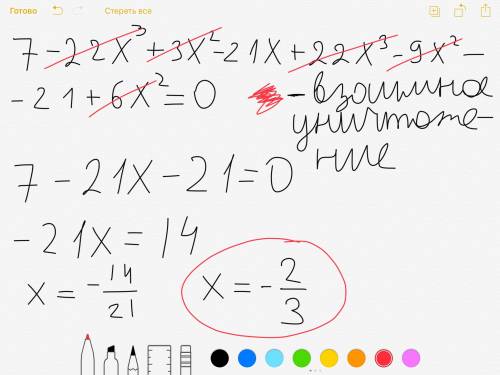 Готово Стереть все
7 - 22x³ + 3x² - 21x + 22x³ - 9x² -
- 21 + 6x² = 0 - взаимное
уничтоже-
ние
7 - 21x - 21 = 0
- 21x = 14
x = - 14/21 x = - 2/3